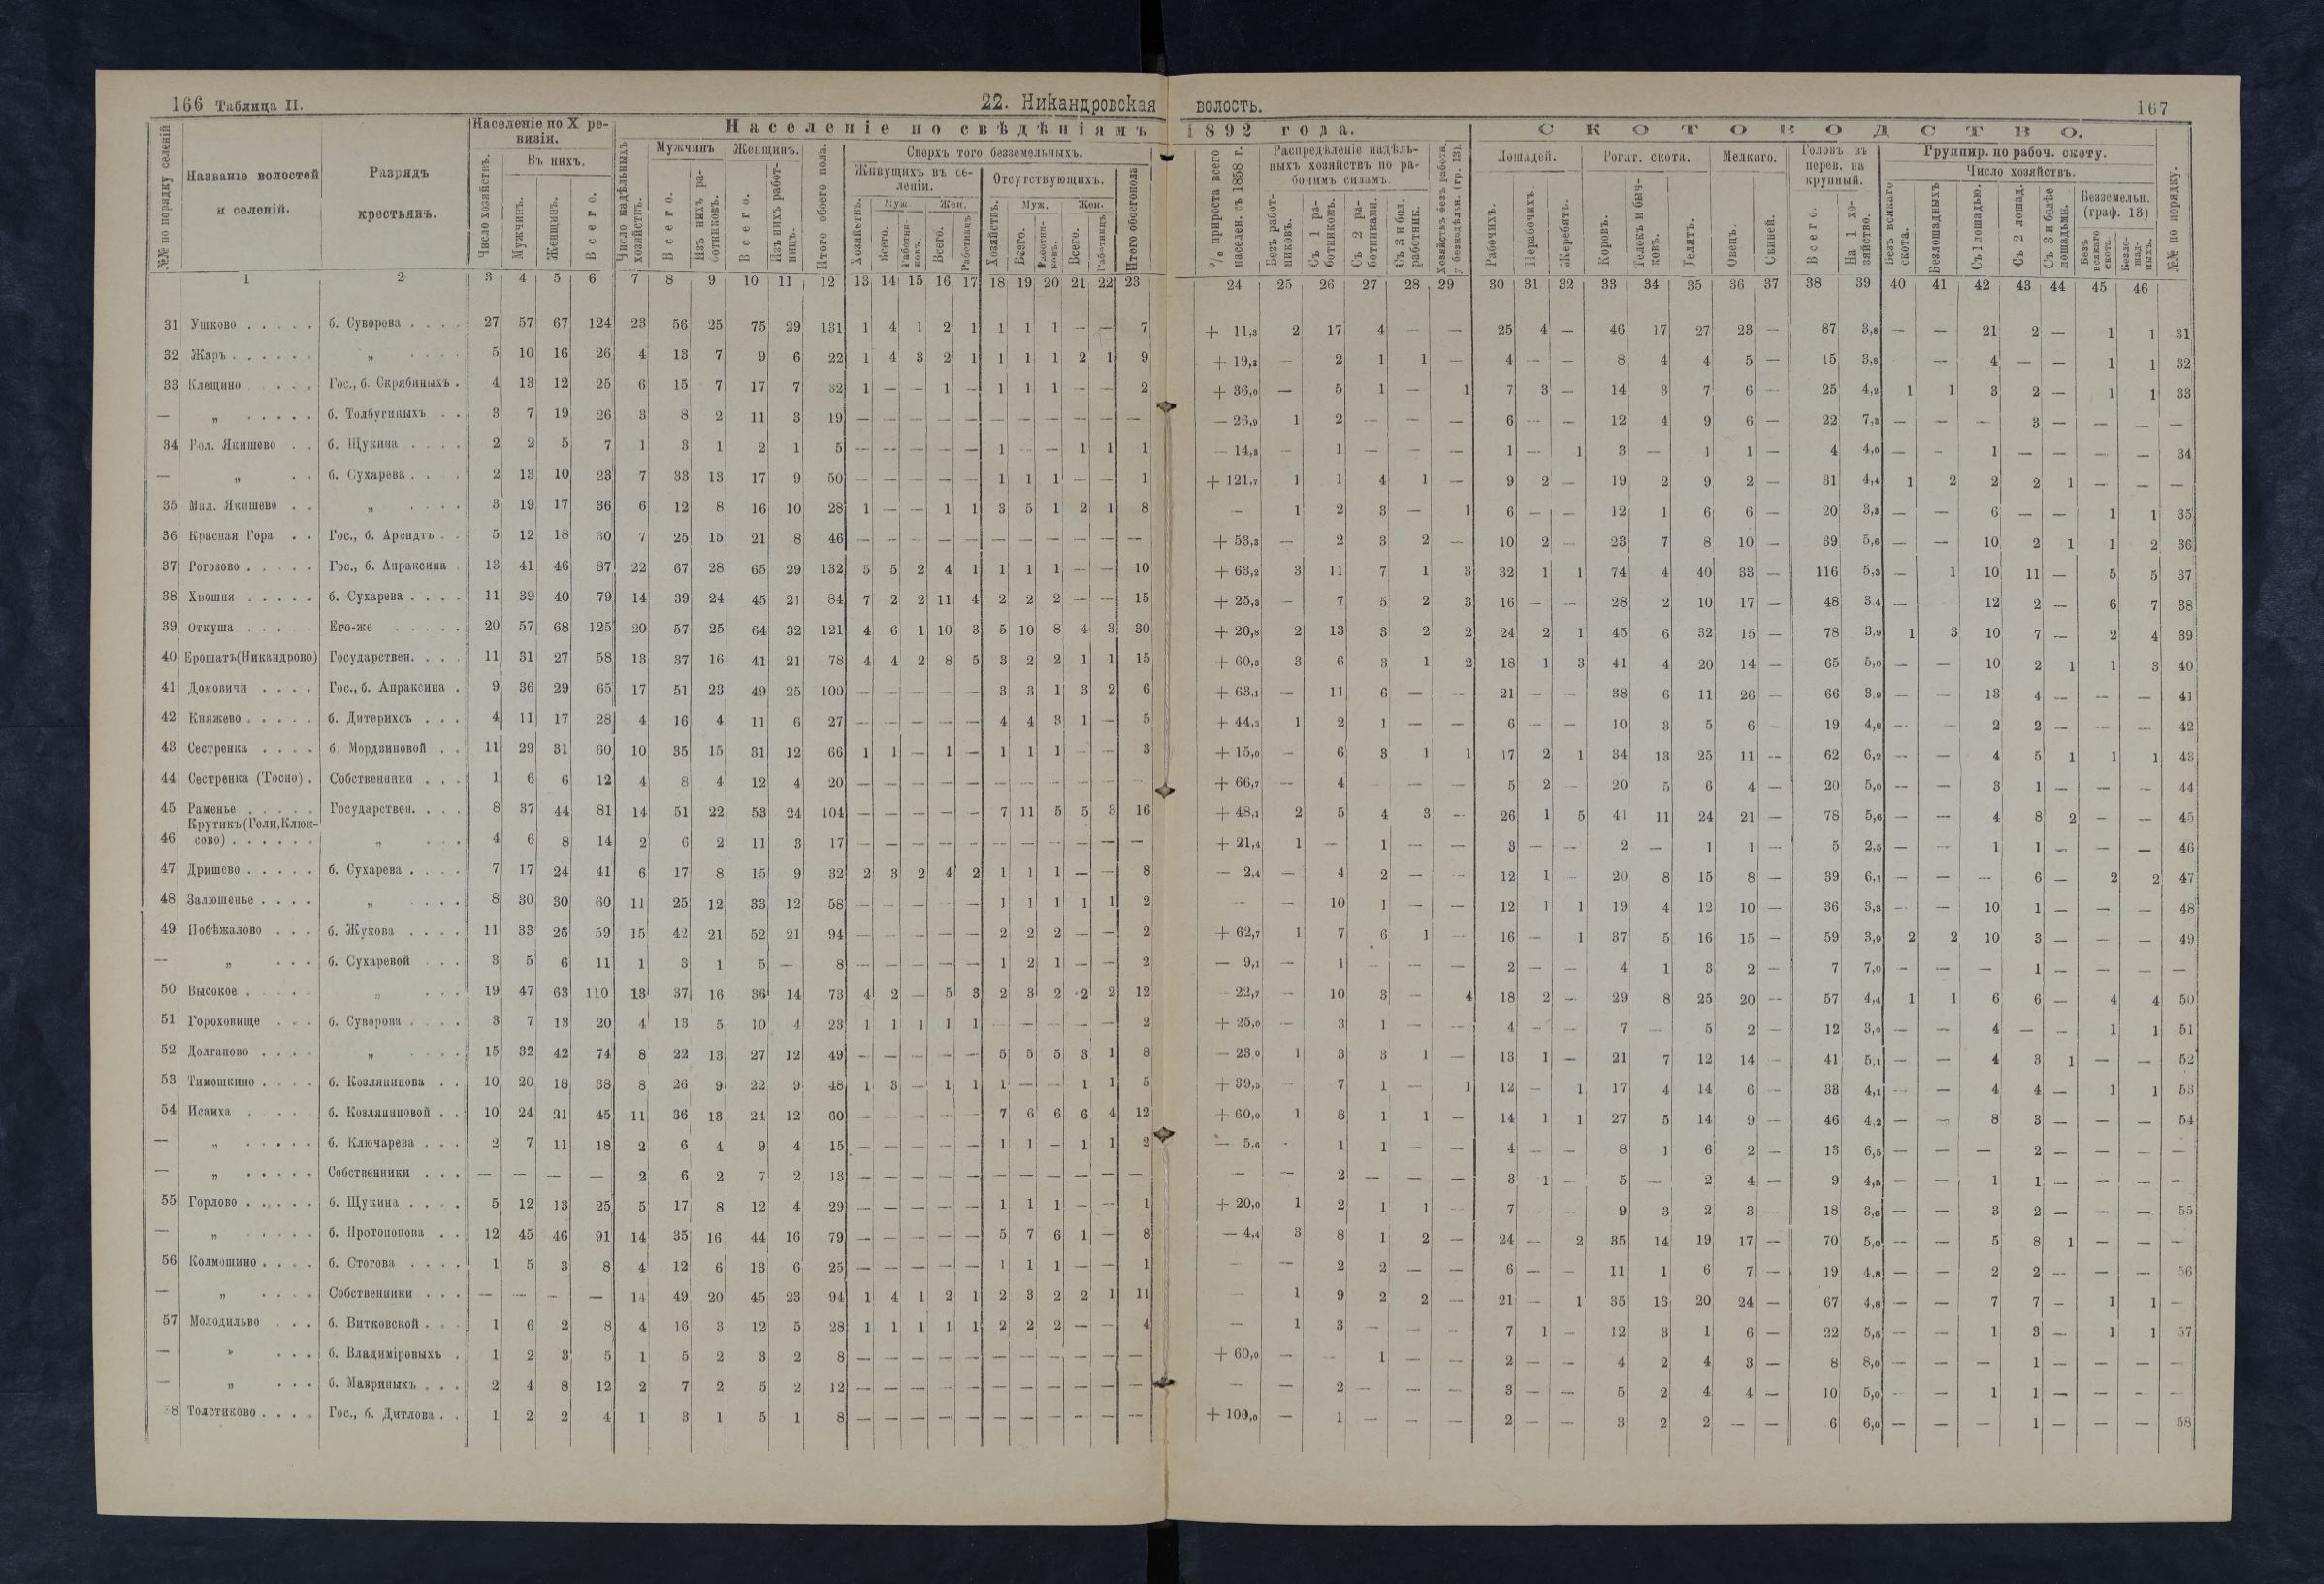 166 Таблица II.
22. Никандровская волость.
167
№№ по порядку селеній
Названіе волостей и селеній.
Разрядъ крестьянъ.
Населеніе по X ревизіи.
Число хозяйствъ.
Въ нихъ.
Мужчинъ.
Женщинъ.
Всего.
Населеніе по свѣдѣніямъ 1892 года.
Число надѣльныхъ хозяйствъ.
Мужчинъ
Всего.
Изъ нихъ работниковъ.
Женщинъ.
Всего.
Изъ нихъ работницъ.
Итого обоего пола.
Сверхъ того безземельныхъ.
Живущихъ въ селеніи.
Отсутствующихъ.
Хозяйствъ.
Муж.
Жен.
Всего.
Работниковъ.
Всего.
Работницъ
Хозяйствъ.
Муж.
Жен.
Всего.
Работниковъ.
Всего.
Работницъ
Итого обоего пола
% прироста всего населен. съ 1858 г.
Распредѣленіе надѣльныхъ хозяйствъ по рабочимъ силамъ.
Безъ работниковъ.
Съ 1 работникомъ.
Съ 2 работниками.
Съ 3 и бол. работник.
Хозяйствъ безъ работн. у безнадѣльн. (гр. 13).
СКОТОВОДСТВО.
Лошадей.
Рабочихъ.
Нерабочихъ.
Жеребятъ.
Рогат. скота.
Коровъ.
Телокъ и бычковъ.
Телятъ.
Мелкаго.
Овецъ.
Свиней.
Головъ въ перев. на крупный.
Всего.
На 1 хозяйство.
Группир. по рабоч. скоту.
Число хозяйствъ.
Безъ всякаго скота.
Безлошадныхъ
Съ 1 лошадью.
Съ 2 лошад.
Съ 3 и болѣе лошадьми.
Безземельн. (граф. 13)
Безъ всякаго скота.
Безлошадныхъ.
№№ по порядку.
1 2 3 4 5 6 7 8 9 10 11 12 13 14 15 16 17 18 19 20 21 22 23 24 25 26 27 28 29 30 31 32 33 34 35 36 37 38 39 40 41 42 43 44 45 46
31 Ушково . . . . . б. Суворова . . . . 27 57 67 124 23 56 25 75 29 131 1 4 1 2 1 1 1 1 — — 7 + 11,3 2 17 4 — — 25 4 — 46 17 27 23 — 87 3,8 — — 21 2 — 1 1 31
32 Жаръ . . . . . . „ . . . . 5 10 16 26 4 13 7 9 6 22 1 4 3 2 1 1 1 1 2 1 9 + 19,2 — 2 1 1 — 4 — — 8 4 4 5 — 15 3,8 — 4 — — 1 1 32
33 Клещино . . . . Гос., б. Скрябиныхъ . 4 13 12 25 6 15 7 17 7 32 1 — — 1 — 1 1 1 — — 2 + 36,0 — 5 1 — 1 7 3 — 14 3 7 6 — 25 4,2 1 1 3 2 — 1 1 33
— „ . . . . . б. Толбугиныхъ . . 3 7 19 26 3 8 2 11 3 19 — — — — — — — — — — — — 26,9 1 2 — — — 6 — — 12 4 9 6 — 22 7,3 — — — 3 — — — —
34 Бол. Якишево . . б. Щукина . . . . 2 2 5 7 1 3 1 2 1 5 — — — — — 1 — — 1 1 1 — 14,3 — 1 — — — 1 — 1 3 — 1 1 — 4 4,0 — — 1 — — — — 34
— „ . . б. Сухарева . . . 2 13 10 23 7 33 13 17 9 50 — — — — — 1 1 1 — — 1 + 121,7 1 1 4 1 — 9 2 — 19 2 9 2 — 31 4,4 1 2 2 2 1 — — —
35 Мал. Якишево . . „ . . . . 3 19 17 36 6 12 8 16 10 28 1 — — 1 1 3 5 1 2 1 8 — 1 2 3 — 1 6 — — 12 1 6 6 — 20 3,3 — — 6 — — 1 1 35
36 Красная Гора . . Гос., б. Арендтъ . . 5 12 18 30 7 25 15 21 8 46 — — — — — — — — — — — + 53,3 — 2 3 2 — 10 2 — 23 7 8 10 — 39 5,6 — — 10 2 1 1 2 36
37 Рогозово . . . . . Гос., б. Апраксина . 13 41 46 87 22 67 28 65 29 132 5 5 2 4 1 1 1 1 — — 10 + 63,2 3 11 7 1 3 32 1 1 74 4 40 33 — 116 5,3 — 1 10 11 — 5 5 37
38 Хвошня . . . . . б. Сухарева . . . . 11 39 40 79 14 39 24 45 21 84 7 2 2 11 4 2 2 2 — — 15 + 25,3 — 7 5 2 3 16 — — 28 2 10 17 — 48 3,4 — 12 2 — 6 7 38
39 Откуша . . . . Его-же . . . . . 20 57 68 125 20 57 25 64 32 121 4 6 1 10 3 5 10 8 4 3 30 + 20,8 2 13 3 2 2 24 2 1 45 6 32 15 — 78 3,9 1 3 10 7 — 2 4 39
40 Ерошатъ(Никандрово) Государствен. . . . 11 31 27 58 13 37 16 41 21 78 4 4 2 8 5 3 2 2 1 1 15 + 60,3 3 6 3 1 2 18 1 3 41 4 20 14 — 65 5,0 — — 10 2 1 1 3 40
41 Домовичи . . . . Гос., б. Апраксина . 9 36 29 65 17 51 23 49 25 100 — — — — — 3 3 1 3 2 6 + 63,1 — 11 6 — — 21 — — 38 6 11 26 — 66 3,9 — — 13 4 — — — 41
42 Княжево . . . . . б. Дитерихсъ . . . 4 11 17 28 4 16 4 11 6 27 — — — — — 4 4 3 1 — 5 + 44,3 1 2 1 — — 6 — — 10 3 5 6 — 19 4,8 — — 2 2 — — — 42
43 Сестренка . . . . б. Мордвиновой . . 11 29 31 60 10 35 15 31 12 66 1 1 — 1 — 1 1 1 — — 3 + 15,0 — 6 3 1 1 17 2 1 34 13 25 11 — 62 6,2 — — 4 5 1 1 1 43
44 Сестренка (Тосно) . Собственники . . . 1 6 6 12 4 8 4 12 4 20 — — — — — — — — — — — + 66,7 — 4 — — — 5 2 — 20 5 6 4 — 20 5,0 — — 3 1 — — — 44
45 Раменье . . . . . Государствен. . . . 8 37 44 81 14 51 22 53 24 104 — — — — — 7 11 5 5 3 16 + 48,1 2 5 4 3 — 26 1 5 41 11 24 21 — 78 5,6 — — 4 8 2 — — 45
Крутикъ(Голи,Клюк-
46 сово) . . . . . . „ . . . 4 6 8 14 2 6 2 11 3 17 — — — — — — — — — — — + 21,4 1 — 1 — — 3 — — 2 — 1 1 — 5 2,5 — — 1 1 — — — 46
47 Дришево . . . . . б. Сухарева . . . . 7 17 24 41 6 17 8 15 9 32 2 3 2 4 2 1 1 1 — — 8 — 2,4 — 4 2 — — 12 1 — 20 8 15 8 — 39 6,1 — — — 6 — 2 2 47
48 Залюшенье . . . . „ . . . . 8 30 30 60 11 25 12 33 12 58 — — — — — 1 1 1 1 1 2 — — 10 1 — — 12 1 1 19 4 12 10 — 36 3,3 — — 10 1 — — — 48
49 Побѣжалово . . . б. Жукова . . . . 11 33 26 59 15 42 21 52 21 94 — — — — — 2 2 2 — — 2 + 62,7 1 7 6 1 — 16 — 1 37 5 16 15 — 59 3,9 2 2 10 3 — — — 49
— „ . . . б. Сухаревой . . . 3 5 6 11 1 3 1 5 — 8 — — — — — 1 2 1 — — 2 — 9,1 — 1 — — — 2 — — 4 1 3 2 — 7 7,0 — — — 1 — — — —
50 Высокое . . . . . „ . . . 19 47 63 110 13 37 16 36 14 73 4 2 — 5 3 2 3 2 2 2 12 — 22,7 — 10 3 — 4 18 2 — 29 8 25 20 — 57 4,4 1 1 6 6 — 4 4 50
51 Гороховище . . . б. Суворова . . . . 3 7 13 20 4 13 5 10 4 23 1 1 1 1 1 — — — — — 2 + 25,0 — 3 1 — — 4 — — 7 — 5 2 — 12 3,0 — — 4 — — 1 1 51
52 Долганово . . . . „ . . . . 15 32 42 74 8 22 13 27 12 49 — — — — — 5 5 5 3 1 8 — 23,0 1 3 3 1 — 13 1 — 21 7 12 14 — 41 5,1 — — 4 3 1 — — 52
53 Тимошкино . . . . б. Козлянинова . . 10 20 18 38 8 26 9 22 9 48 1 3 — 1 1 1 — — 1 1 5 + 39,5 — 7 1 — 1 12 — 1 17 4 14 6 — 33 4,1 — — 4 4 — 1 1 53
54 Исаиха . . . . . б. Козляниновой . . 10 24 21 45 11 36 13 24 12 60 — — — — — 7 6 6 6 4 12 + 60,0 1 8 1 1 — 14 1 1 27 5 14 9 — 46 4,2 — — 8 3 — — — 54
— „ . . . . . б. Ключарева . . . 2 7 11 18 2 6 4 9 4 15 — — — — — 1 1 — 1 1 2 — 5,6 - 1 1 — — 4 — — 8 1 6 2 — 13 6,5 — — — 2 — — — —
— „ . . . . . Собственники . . . — — — — 2 6 2 7 2 13 — — — — — — — — — — — — — 2 — — — 3 1 — 5 — 2 4 — 9 4,5 — — 1 1 — — — —
55 Горлово . . . . . б. Щукина . . . . 5 12 13 25 5 17 8 12 4 29 — — — — — 1 1 1 — — 1 + 20,0 1 2 1 1 — 7 — — 9 3 2 3 — 18 3,6 — — 3 2 — — — 55
— „ . . . . . б. Протопопова . . 12 45 46 91 14 35 16 44 16 79 — — — — — 5 7 6 1 — 8 — 4,4 3 8 1 2 — 24 — 2 35 14 19 17 — 70 5,0 — — 5 8 1 — — —
56 Колмошино . . . . б. Стогова . . . . 1 5 3 8 4 12 6 13 6 25 — — — — — 1 1 1 — — 1 — — 2 2 — — 6 — — 11 1 6 7 — 19 4,8 — — 2 2 — — — 56
— „ . . . . Собственники . . . — — — — 14 49 20 45 23 94 1 4 1 2 1 2 3 2 2 1 11 — 1 9 2 2 — 21 — 1 35 13 20 24 — 67 4,8 — — 7 7 — 1 1 —
57 Молодильво . . . б. Витковской . . . 1 6 2 8 4 16 3 12 5 28 1 1 1 1 1 2 2 2 — — 4 — 1 3 — — — 7 1 — 12 3 1 6 — 22 5,5 — — 1 3 — 1 1 57
— „ . . . б. Владиміровыхъ . 1 2 3 5 1 5 2 3 2 8 — — — — — — — — — — — + 60,0 — — 1 — — 2 — — 4 2 4 3 — 8 8,0 — — — 1 — — — —
— „ . . . б. Мавриныхъ . . . 2 4 8 12 2 7 2 5 2 12 — — — — — — — — — — — — — 2 — — — 3 — — 5 2 4 4 — 10 5,0 — — 1 1 — — — —
58 Толстиково . . . . Гос., б. Дитлова . . 1 2 2 4 1 3 1 5 1 8 — — — — — — — — — — — + 100,0 — 1 — — — 2 — — 3 2 2 — — 6 6,0 — — — 1 — — — 58